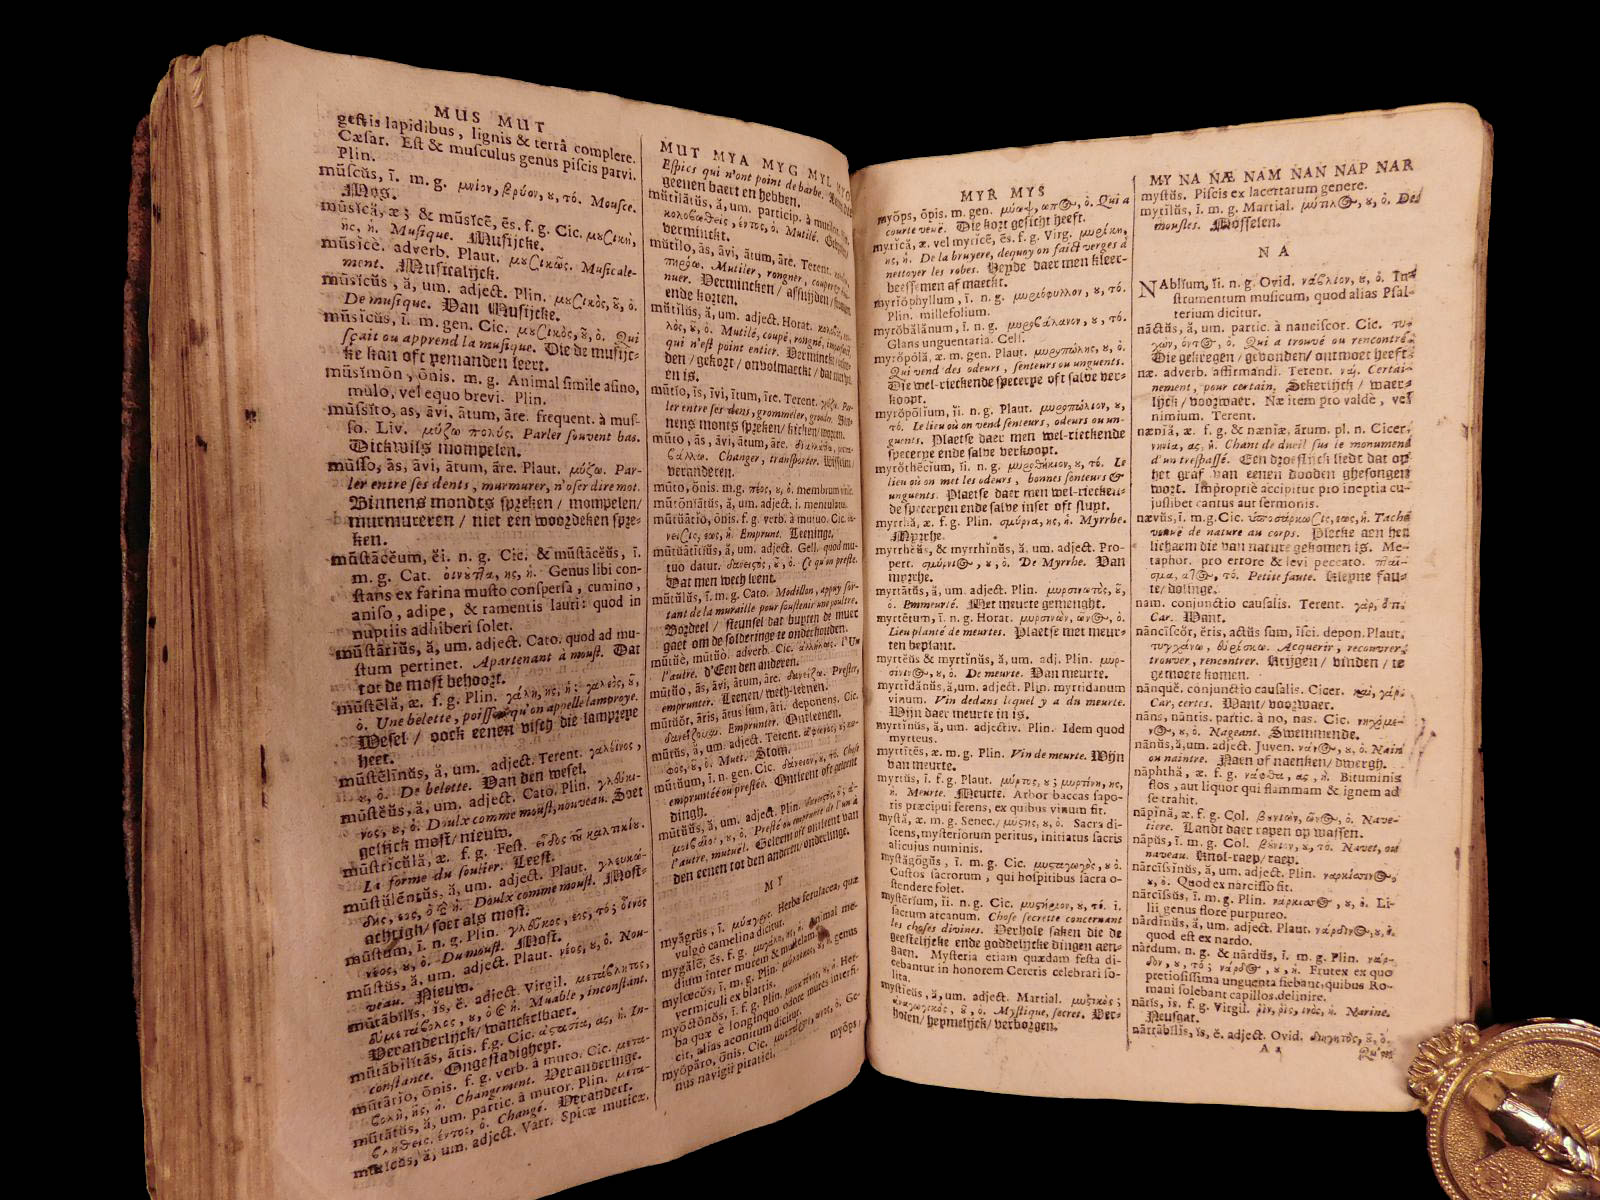 MUS MUT
gestis lapidibus, lignis & terrâ complere.
Cæsar. Est & musculus genus piscis parvi.
Plin.
mūscŭs, ī. m. g. μνίον, βρύον, ȣ, τό. Mousce.
Mos.
mūsĭcă, æ; & mūsĭcē, ēs. f. g. Cic. μȣσικὴ,
ῆς, ἡ. Musique. Musijcke.
mūsĭcè. adverb. Plaut. μȣσικῶς. Musicale-
ment. Musicalijck.
mūsĭcŭs, ă, um. adject. Plin. μȣσικὸς, ȣ̃, ὁ.
De musique. Van Musijcke.
mūsĭcŭs, ī. m. gen. Cic. μȣσικὸς, ȣ̃, ὁ. Qui
sçait ou apprend la musique. Die de musijc-
ke kan oft yemanden leert.
mūsĭmōn, ōnis. m. g. Animal simile asino,
mulo, vel equo brevi. Plin.
mūssĭto, as, āvi, ātum, āre. frequent. à mus-
so. Liv. μύζω πολύς. Parler souvent bas.
Dickwils mompelen.
mūsso, ās, āvi, ātum, āre. Plaut. μύζω. Par-
ler entre ses dents, murmurer, n'oser dire mot.
Binnens mondts spreken / mompelen/
murmureren / niet een woordeken spre-
ken.
mūstācĕum, ĕi. n. g. Cic. & mūstācĕŭs, ī.
m. g. Cat. Genus libi con-
stans ex farina musto conspersa, cumino,
aniso, adipe, & ramentis lauri: quod in
nuptiis adhiberi solet.
mūstārĭus, ă, um. adject. Cato. quod ad mu-
stum pertinet. Apartenant à moust. Dat
tot de most behoort.
mūstēlă, æ. f. g. Plin. γαλῆ, ῆς, ἡ; γαλεὸς, ȣ̃,
ὁ. Une belette, poisson qu'on appelle lamproye.
Wesel / oock eenen visch die lampreye
heet.
mūstēlīnŭs, ă, um. adject. Terent.
ȣ, ὁ. De belette. Van den wesel.
mūstĕŭs, ă, um. adject. Cato. Plin.
νος, ȣ, ὁ. Doulx comme moust, nouveau. Soet
gelijck most/nieuw.
mūstrĭcŭlă, æ. f. g. Fest.
La forme du soulier. Leest.
mūstŭlēntŭs, ă, um. adject. Plaut.
Doulx comme moust. Most-
achtigh/soet als most.
mūstum, ī. n. g. Plin. γλεῦκος, εος, τό; οἶνος
νέος, ȣ, ὁ. Du moust. Most.
mūstŭs, ă, um. adject. Plaut. νέος, ȣ, ὁ. Nou-
veau. Nieuw.
mūtābĭlĭs, ĭs, ĕ. adject. Virgil. μετάβλητος,
Muable, inconstant.
Veranderlijck/wanckelbaer.
mūtābĭlĭtās, ātis. f. g. Cic. In-
constance. Ongestadigheyt.
mūtātĭo, ōnis. f. g. verb. à muto. Cic. μετα-
βολὴ, ῆς, ἡ. Changement. Veranderinge.
mūtātŭs, ă, um. partic. à mutor. Plin.
Changé. Verandert.
mūtĭcŭs, ă, um. adject. Varr. Spicæ muticæ.
MUT MYA MYG MYL MYO
Espics qui n'ont point de barbe.
geenen baert en hebben.
mŭtĭlātŭs, ă, um. particip. à mutilor.
Mutilé.
verminckt.
mŭtĭlo, ās, āvi, ātum, āre. Terent.
Mutiler, rongner, couper
nuer. Vermincken / afsnijden /
ende korten.
mŭtĭlŭs, ă, um. adject. Horat.
λὸς, ȣ̃, ὁ. Mutilé, coupé, rongné,
qui n'est point entier.
den / gekort / onvolmaeckt /
en is.
mūtĭo, īs, īvi, ītum, īre. Terent. Par-
ler entre ses dens, grommeler,
nens monts spreken/
mūto, ās, āvi, ātum, āre.
Changer, transporter.
veranderen.
mūto, ōnis. m. g. πέος, ȣ, ὁ. membrum virile.
mūtōnĭātŭs, ă, um. adject. i. mentulatus.
mūtŭātĭo, ōnis. f. g. verb. à mutuo. Cic.
Emprunt. Leeninge.
mūtŭātĭtĭŭs, ă, um. adject. Gell. quod mu-
tuo datur. Ce qu'on preste.
Dat men wech leent.
mūtŭlŭs, ī. m. g. Cato. Modillon, appuy sor-
tant de la muraille pour soustenir une poultre.
Bordeel / steunsel dat buyten de muer
gaet om de solderinge te onderhouden.
mūtŭè, mūtŭò. adverb. Cic. ἀλλήλως. l'Un
l'autre. d'Een den anderen.
mūtŭo, ās, āvi, ātum, āre. δανείζω. Prester,
emprunter. Leenen/wech-leenen.
mūtŭŏr, āris, ātus sum, āri. deponens. Cic.
δανείζομαι. Emprunter. Ontleenen.
mūtŭs, ă, um. adject. Terent.
Muet. Stom.
mūtŭum, ī. n. gen. Cic. δάνειον, ȣ, τό. Chose
empruntée ou prestée. Ontleent oft geleent
dingh.
mūtŭŭs, ă, um. adject. Plin.
Presté ou emprunté de l'un à
l'autre, mutuel. Geleent oft ontleent van
den eenen tot den anderen/onderlinge.
MY
myāgrŭs, ī. Herba ferulacea, quæ
vulgò camelina dicitur.
mygălē, ēs. f. g. Animal me-
dium inter murem & mustelam.
mylœcŏs, ī, m. g. Plin. genus
vermiculi ex blattis.
myŏctŏnŏs, ī. f. g. Plin. Her-
ba quæ è longinquo odore mures interfi-
cit, alias aconitum dicitur.
myŏpāro, ōnis. Cic. Ge-
nus navigii piratici.
myōps,
MYR MYS
myōps, ōpis. m. gen. μύωψ, ωπος, ὁ. Qui a
courte veuë. Die kort gesicht heeft.
myrīcă, æ. vel myrīcē, ēs. f. g. Virg. μυρίκη,
ης, ἡ. De la bruyere, dequoy on faict verges à
nettoyer les robes. Heyde daer men kleer-
beesemen af maeckt.
myrĭŏphyllum, ī. n. g. μυριόφυλλον, ȣ, τό.
Plin. millefolium.
myrŏbălănum, ī. n. g. μυροβάλανον, ȣ, τό.
Glans unguentaria. Cels.
myrŏpōlă, æ. m. gen. Plaut. μυροπώλης, ȣ, ὁ.
Qui vend des odeurs, senteurs ou unguents.
Die wel-rieckende speterye oft salve ver-
koopt.
myrŏpōlĭum, ĭi. n. g. Plaut. μυροπώλιον, ȣ,
τό. Le lieu où on vend senteurs, odeurs ou un-
guents. Plaetse daer men wel-rieckende
speterye ende salve verkoopt.
myrŏthēcĭum, ĭi. n. g. μυροθήκιον, ȣ, τό. Le
lieu où on met les odeurs, bonnes senteurs &
unguents. Plaetse daer men wel-riecken-
de speteryen ende salve inset oft sluyt.
myrrhă, æ. f. g. Plin. σμύρνα, ης, ἡ. Myrrhe.
Myrrhe.
myrrhĕŭs, & myrrhĭnŭs, ă, um. adject. Pro-
pert. De Myrrhe. Van
myrrhe.
myrtātŭs, ă, um. adject. Plin.
ὁ. Emmeurté. Met meurte gemenght.
myrtētum, ī. n. g. Horat. μυρσινὼν, ῶνος, ὁ.
Lieu planté de meurtes. Plaetse met meur-
ten beplant.
myrtĕŭs & myrtĭnŭs, ă, um. adj. Plin. μυρ-
De meurte. Van meurte.
myrtĭdānŭs, ă, um. adject. Plin. myrtidanum
vinum. Vin dedans lequel y a du meurte.
Wijn daer meurte in is.
myrtĭnŭs, ă, um. adjectiv. Plin. Idem quod
myrteus.
myrtītēs, æ. m. g. Plin. Vin de meurte. Wijn
van meurte.
myrtŭs, ī. f. g. Plaut. μύρτος, ȣ; μυρτίνη, ης,
ἡ. Meurte. Meurte. Arbor baccas sapo-
ris præcipui ferens, ex quibus vinum fit.
mystă, æ. m. g. Senec. μύστης, ȣ, ὁ. Sacra di-
scens, mysteriorum peritus, initiatus sacris
alicujus numinis.
mystăgōgŭs, ī. m. g. Cic. μυσταγωγὸς, ȣ ὁ.
Custos sacrorum, qui hospitibus sacra o-
stendere solet.
mystērĭum, ĭi. n. g. Cic. μυστήριον, ȣ, τό. i.
sacrum arcanum. Chose secrette concernant
les choses divines. Verhole saken die de
geestelijcke ende goddelijcke dingen aen-
gaen. Mysteria etiam quædam festa di-
cebantur in honorem Cereris celebrari so-
lita.
mystĭcŭs, ă, um. adject. Martial. μυστικὸς;
ἀναγωγικὸς, ȣ̃, ὁ. Mystique, secret. Ver-
holen/heymelijck/verborgen.
MY NA NÆ NAM NAN NAP NAR
mystŭs. Piscis ex lacertarum genere.
mytĭlŭs, ī. m. g. Martial. μύτιλος, ȣ, ὁ. Des
mousles. Mosselen.
NA
NAblĭum, ĭi. n. g. Ovid. νάβλιον, ȣ, ὁ. In-
strumentum musicum, quod alias Psal-
terium dicitur.
nāctŭs, ă, um. partic. à nanciscor. Cic. τυ-
χὼν, όντος, ὁ. Qui a trouvé ou rencontré.
Die gekregen / gevonden / ontmoet heeft.
næ. adverb. affirmandi. Terent. ναί. Certai-
nement, pour certain. Sekerlijck / waer-
lijck / voorwaer. Næ item pro valdè, vel
nimium. Terent.
nænĭă, æ. f. g. & nænĭæ, ārum. pl. n. Cicer.
Chant de dueil sus le monument
d'un trespassé. Een droeflijck liedt dat op
het graf van eenen dooden ghesongen
wort. Impropriè accipitur pro ineptia cu-
jusļibet cantus aut sermonis.
nævŭs, ī. m. g. Cic. Tache
venuë de nature au corps. Plecke aen het
lichaem die van nature gekomen is. Me-
taphor. pro errore & levi peccato.
Petite faute. Kleyne fau-
te/dolinge.
nam. conjunctio causalis. Terent. γάρ,
Car. Want.
nāncīscŏr, ĕris, actŭs sum, īsci. depon. Plaut.
τυγχάνω, εὑρίσκω. Acquerir, recouvrer,
trouver, rencontrer. Krijgen / vinden / te
gemoete komen.
nānquè. conjunctio causalis. Cicer. καὶ, γάρ.
Car, certes. Want/voorwaer.
nāns, nāntis. partic. à no, nas. Cic.
Nageant. Swemmende.
nānŭs, ă, um. adject. Juven. νάνος, ȣ, ὁ. Nain
ou naintre. Naen of naenken/dwergh.
nāphthă, æ. f. g. νάφθα, ας, ἡ. Bituminis
flos, aut liquor qui flammam & ignem ad
se trahit.
nāpīnă, æ. f. g. Col. Nave-
tiere. Landt daer rapen op wassen.
nāpŭs, ī. m. g. Col. βȣνίον, ȣ, τό. Navet, ou
naveau. Knol-raep/raep.
nārcīssĭnŭs, ă, um. adject. Plin.
ȣ, ὁ. Quod ex narcisso fit.
nārcīssŭs, ī. m. g. Plin. νάρκισσος, ȣ, ὁ. Li-
lii genus flore purpureo.
nārdĭnŭs, ă, um. adject. Plaut. νάρδινος, ȣ, ὁ.
quod est ex nardo.
nārdum, n. g. & nārdŭs, ī. m. g. Plin. νάρ-
δον, ȣ, τό; νάρδος, ȣ, ἡ. Frutex ex quo
pretiosissima unguenta fiebant, quibus Ro-
mani solebant capillos delinire.
nārĭs, ĭs. f. g. Virgil. ῥὶν, ῥὶς, ινὸς, ἡ. Narine.
Neusgat.
nārrābĭlĭs, ĭs, ĕ. adject. Ovid.
A a